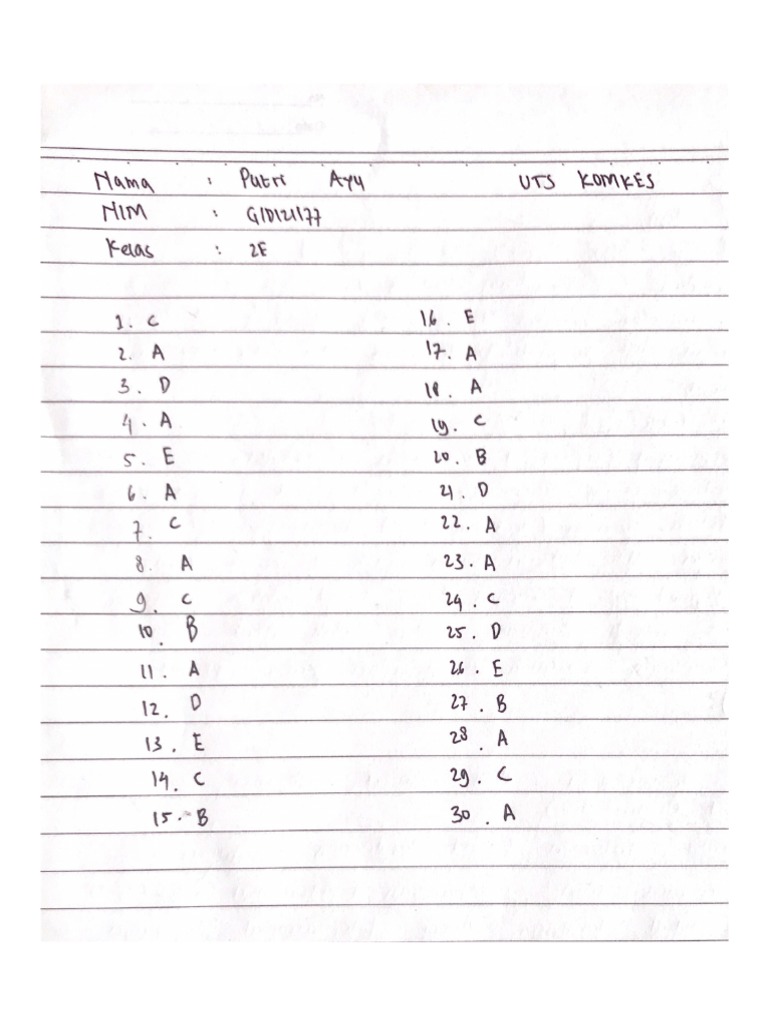 Nama : Putri Ayu UTS KOMKES
NIM : G1D121177
Kelas : 2E
1. C
2. A
3. D
4. A
5. E
6. A
7. C
8. A
9. C
10. B
11. A
12. D
13. E
14. C
15. B
16. E
17. A
18. A
19. C
20. B
21. D
22. A
23. A
24. C
25. D
26. E
27. B
28. A
29. C
30. A